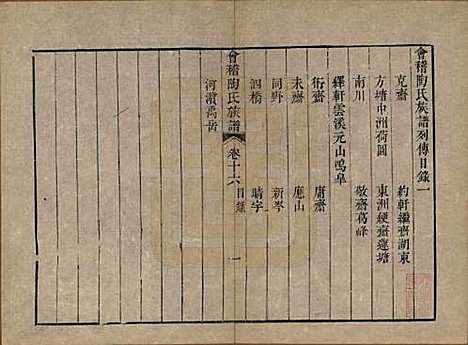 會稽陶氏族譜列傳目錄一
克齋　約軒繼齋湖東
方塘中洲荷園　東洲綬齋蓮塘
南川　敬齋葛峰
繹軒雲溪元山鳴皐
衔齋　庸齋
未齋　應山
同野　新岑
泗橋　晴宇
會稽陶氏族譜　卷十六　目錄　一
河濱禹畨